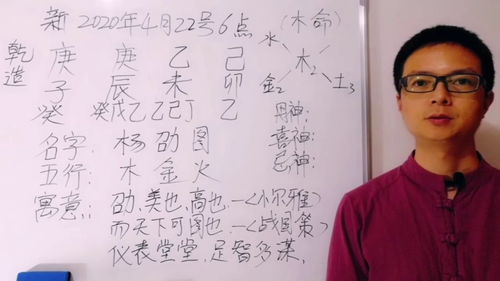 新 2020年4月22号6点 (木命)
乾造
庚 庚 乙 己
子 辰 未 卯
癸 癸戊乙 乙己丁 乙
水
木2
金2
土3
用神:
喜神:
忌神:
名字: 杨劭图
五行: 木 金 火
寓意: 劭,美也,高也,—《小尔雅》
而天下可图也,—《战国策》
仪表堂堂,足智多谋,